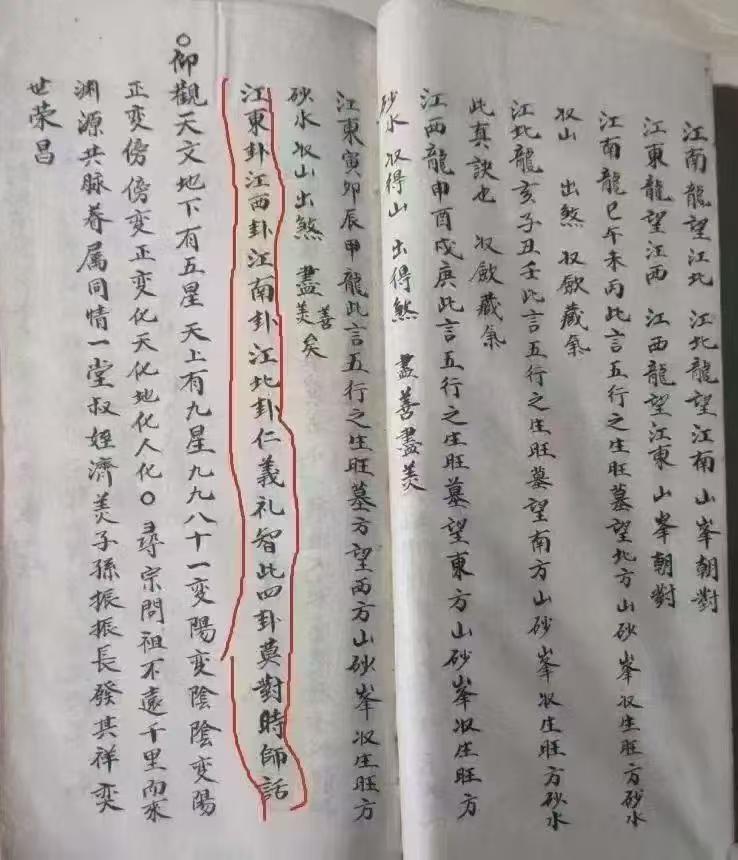 江南龍望江北 江北龍望江南山峯朝對
江東龍望江西 江西龍望江東 山峯朝對
江南龍巳午未丙此言五行之生旺墓望北方山砂峯収生旺方砂水
収山 出煞 収欽藏氣
江北龍亥子丑壬此言五行之生旺墓望南方山砂峯収生旺方砂水
此真訣也 収歛藏氣
江西龍申酉戌庚此言五行之生旺墓望東方山砂峯収庄旺方
砂水 収得山 出得煞 盡善盡美
江東寅卯辰甲龍此言五行之生旺墓方望西方山砂峯収生旺方
砂水収山出煞 盡善美矣
江東卦江西卦江南卦江北卦仁義礼智此四卦莫對時師話
仰觀天文地下有五星天上有九星九九八十一変陽変陰陰変陽
正变傍傍変正变化天化地化人化○尋宗問祖不遠千里而來
渊源共脉眷属同情一堂叔姪濟美子孫振振長發其祥奕
世荣昌